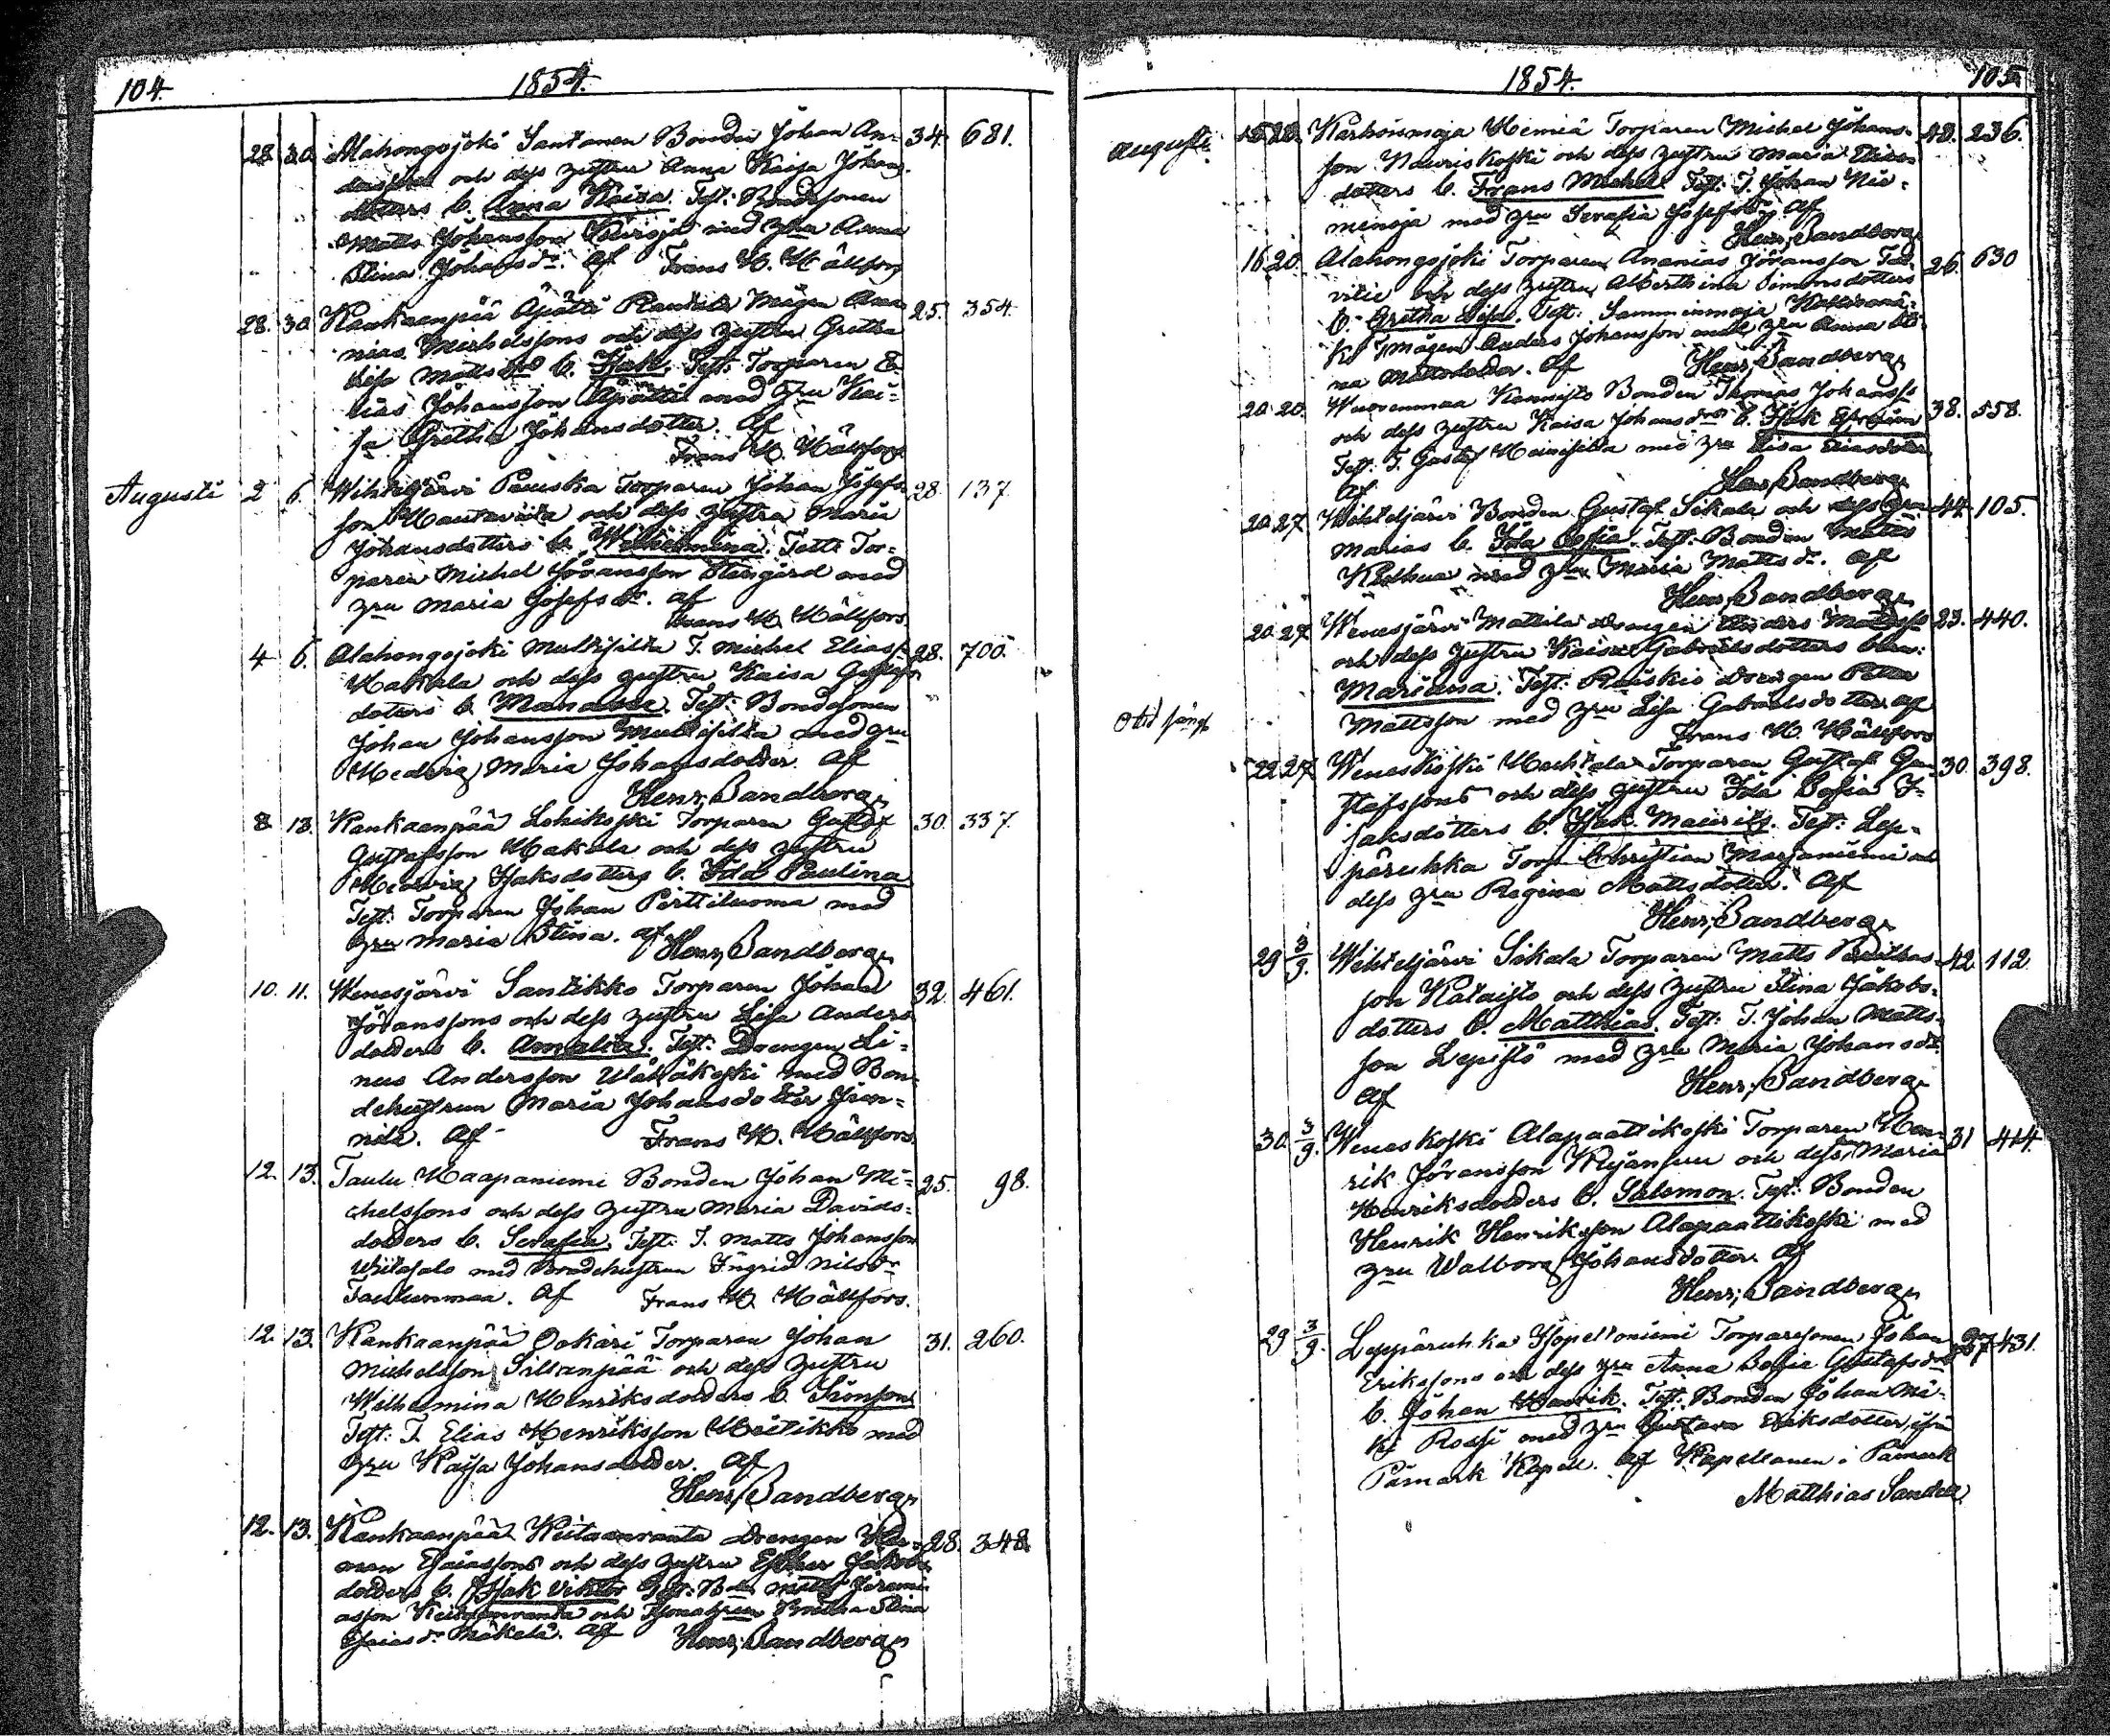 104. 1854.
28. 30. Alahongojoki Santanen Bonden Johan An- 34. 681.
och dess hustru Anna Kaisa Johans-
dotters b. Anna Kaisa. Test: Bondesonen
Matts Johansson med hru Anna
Stina Johansdr. af Frans H. Hällfors
28. 30. Kankaanpää Ajätti Mågen Ana- 25. 354.
nias Michelssons och dess hustru Gretha
Lisa Matts dr b. Isak. Test: Torparen E-
lias Johansson Ajätti med hru Kai-
sa Gretha Johansdotter. af
Frans H. Hällfors
Augusti 2 6. Wihteljärvi Pauska Torparen Johan Josefs- 28. 137.
son Hautaviita och dess hustru Maria
Johansdotters b. Wilhelmina. Test: Tor-
paren Michel Göransson Stengård med
hru Maria Josefs dr. af
Frans H. Hällfors
4 6. Alahongojoki Multisilta T. Michel Eliass. 28. 700.
Hakala och dess hustru Kaisa Gustafs
dotters b. Manasse. Test: Bondesonen
Johan Johansson Multisilta med hru
Hedvig Maria Johansdotter. af
Henr. Sandberg.
8 13. Kankaanpää Lohikoski Torparen Gustaf 30. 337.
Gustafsson Hakala och dess hustru
Hedvig Isaksdotters b. Ida Paulina
Test: Torparen Johan Perttiluoma med
hru Maria Stina. af Henr. Sandberg.
10. 11. Wenesjärvi Santikko Torparen Johan 32. 461.
Göranssons och dess hustru Lisa Anders
dotters b. Amalia. Test: Drengen Li-
nus Andersson med Bon-
dehustrun Maria Johansdotter
af Frans H. Hällfors.
12. 13. Taulu Haapaniemi Bonden Johan Mi- 25. 98.
chelssons och dess hustru Maria Davids-
dotters b. Serafia. Test: T. Matts Johansson
Wiitasalo med Bondehustrun Ingrid Nilsdr
Taulunmaa. af Frans H. Hällfors.
12. 13. Kankaanpää Ookari Torparen Johan 31. 260.
Michelsson Sillanpää och dess hustru
Wilhelmina Henriksdotters b. Simson
Test: T. Elias Henriksson Hietikko med
hru Kaisa Johansdotter. af
Henr. Sandberg.
12. 13. Kankaanpää Keitaanranta Drengen Her- 28. 348.
man Esaiassons och dess hustru Esther Jakobs
dotters b. Isak Viktor Test: Matts Jeremi-
asson Keitaanranta och Stina
Esaias dr Mäkelä. af Henr. Sandberg.
1854. 105.
Augusti. 15 20. Karhoismaja Hemiä Torparen Michel Johans- 43. 236.
son Nauriskoski och dess hustru Maria Elias
dotters b. Frans Michel. Test: T. Johan Nie-
menoja med hru Serafia Josefsdr af
Henr. Sandberg.
16 20. Alahongojoki Torparen Ananias Göransson 26. 630
och dess hustru Albertina Simonsdotters
b. Gretha Lisa. Test: Samminmaja
Mågen Anders Johansson med hru Anna Sti-
na Mattsdotter. af Henr. Sandberg.
20. 20. Wuorenmaa Kannisto Bonden Thomas Johanss. 38. 558.
och dess hustru Kaisa Johansdrs b. Isak Efraim
Test: T. Gustaf med hru Lisa Eliasdotter
af Henr. Sandberg.
20 27. Wihteljärvi Bonden Gustaf Sikala och dess hru 44. 105.
Marias b. Ida Sofia. Test: Bonden Matts
med hru Maria Matts dr. af
Henr. Sandberg.
20. 27. Wenesjärvi Mattila drengen Anders Mattss 23. 440.
och dess hustru Kaisa Gabrielsdotters
Mariana. Test: Drengen Petter
Mattsson med hru Lisa Gabrielsdotter. af
Frans H. Hällfors
22 27. Weneskoski Uusitalo Torparen Gustaf Gu- 30. 398.
stafssons och dess hustru Ida Sofia I-
saksdotters b. Isak Maurits. Test: Lep-
päruhka Torp. Christian Marjaniemi och
dess hru Regina Mattsdotter. af
Henr. Sandberg.
29 3/9. Wihteljärvi Sikala Torparen Matts 42. 112.
son Kataisto och dess hustru Stina Jakobs-
dotters b. Matthias. Test: T. Johan Matts-
son Lepistö med hru Maria Johansdr.
af Henr. Sandberg.
30. 3/9. Weneskoski Alapaattikoski Torparen Hen- 31 414.
rik Göransson och dess hru Maria
Henriksdotters b. Salomon. Test: Bonden
Henrik Henriksson Alapaattikoski med
hru Walborg Johansdotter. af
Henr. Sandberg.
29 3/9. Leppäruhka Torparesonen Johan 27 431.
Erikssons och dess hru Anna Sofia Gustafsdrs
b. Johan Henrik. Test: Bonden Johan Mi-
med hru Gustava Eriksdotter ifrån
Påmark Kapell. af Kapellanen i Påmark
Matthias Sandell.